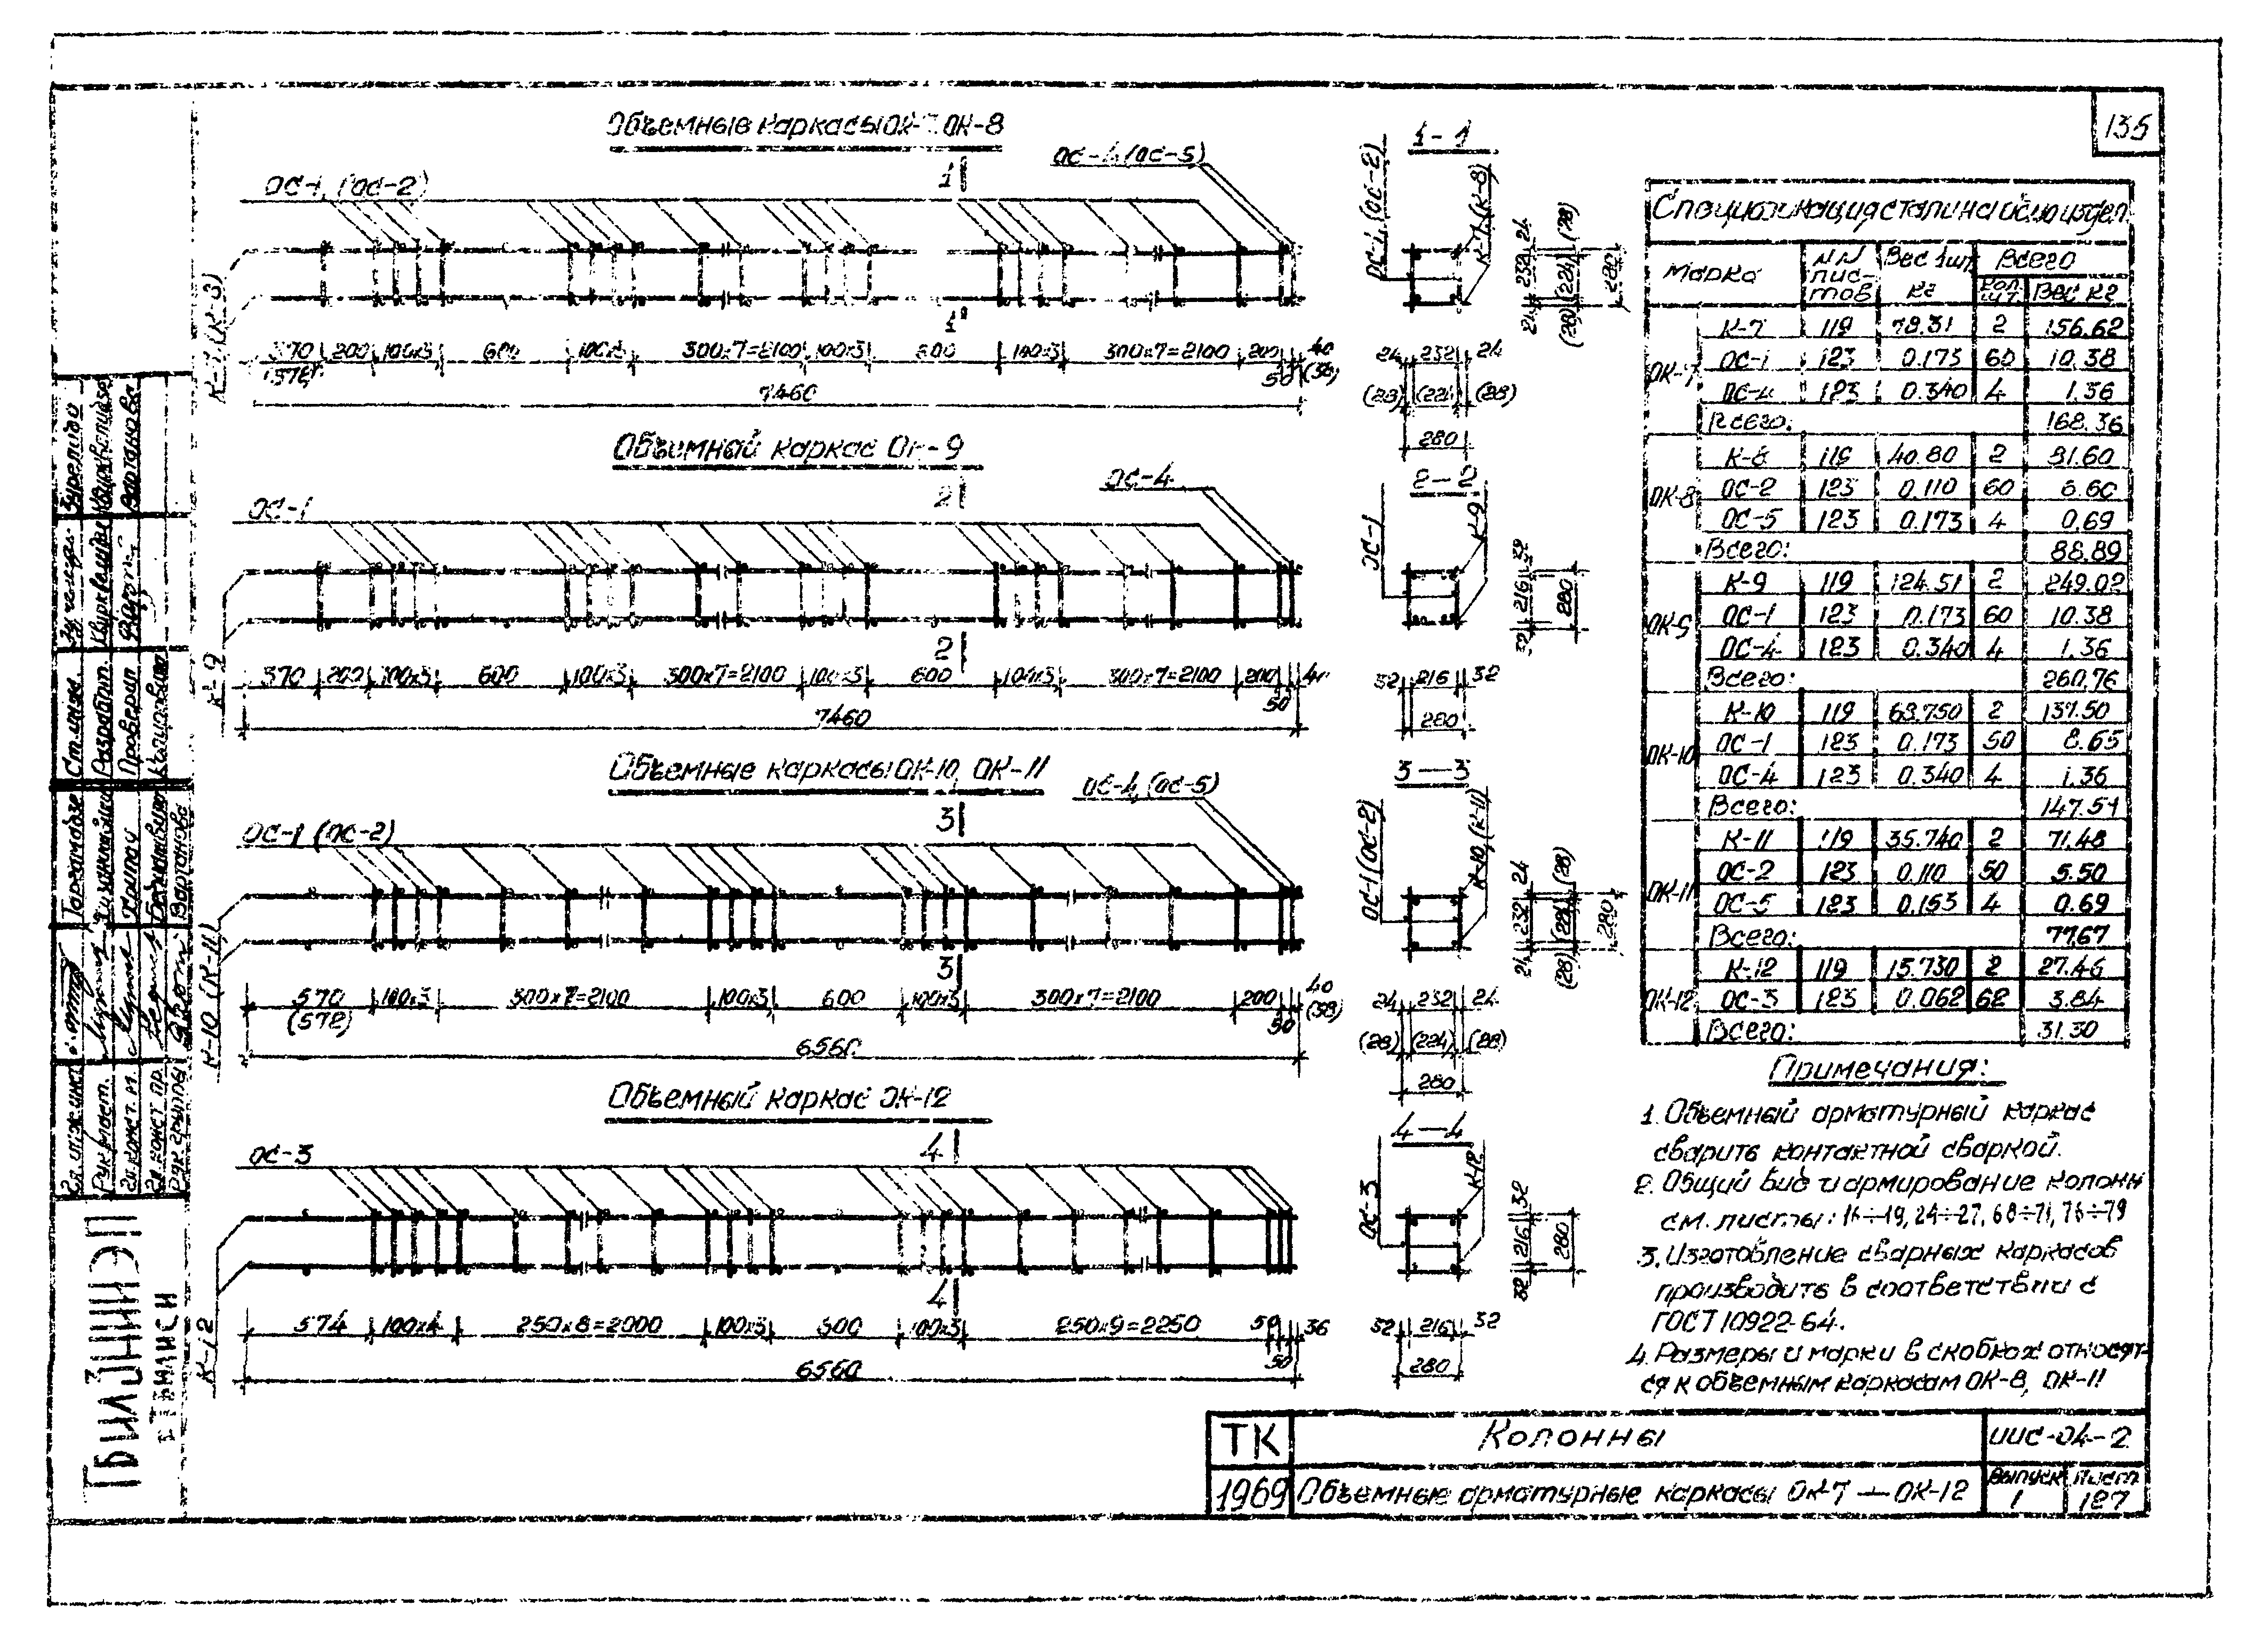 135
Объемные каркасы ОК-7 ОК-8
ОС-1, (ОС-2)
ОС-4 (ОС-5)
1
1
К-7 (К-8)
370 200 100х3 600 100х3 300х7=2100 100х3 600 100х3 300х7=2100 200 40
(372) 50 (36)
7460
1-1
ОС-1, (ОС-2)
К-7 (К-8)
24 232 24
(28) (224) (28)
280
24 232 24
(28) (224) (28)
280
Объемный каркас ОК-9
ОС-1
ОС-4
2
2
К-9
370 200 100х3 600 100х3 300х7=2100 100х3 600 100х3 300х7=2100 200 40
50
7460
2-2
ОС-1
К-9
32 216 32
280
32 216 32
280
Объемные каркасы ОК-10, ОК-11
ОС-1 (ОС-2)
ОС-4, (ОС-5)
3
3
К-10 (К-11)
570 100х3 300х7=2100 100х3 600 100х3 300х7=2100 200 40
(572) 50 (38)
6560
3-3
ОС-1 (ОС-2)
К-10, (К-11)
24 232 24
(28) (224) (28)
280
24 232 24
(28) (224) (28)
280
Объемный каркас ОК-12
ОС-3
4
4
К-12
574 100х4 250х8=2000 100х3 600 100х3 250х9=2250 50 36
50
6560
4-4
ОС-3
К-12
32 216 32
280
32 216 32
280
Спецификация стали на одно издел.
Марка NN листов Вес 1шт кг Всего
Кол. шт Вес кг
ОК-7 К-7 119 78.31 2 156.62
ОС-1 123 0.173 60 10.38
ОС-4 123 0.340 4 1.36
Всего: 168.36
ОК-8 К-8 119 40.80 2 81.60
ОС-2 123 0.110 60 6.60
ОС-5 123 0.173 4 0.69
Всего: 88.89
ОК-9 К-9 119 124.51 2 249.02
ОС-1 123 0.173 60 10.38
ОС-4 123 0.340 4 1.36
Всего: 260.76
ОК-10 К-10 119 63.750 2 137.50
ОС-1 123 0.173 50 8.65
ОС-4 123 0.340 4 1.36
Всего: 147.51
ОК-11 К-11 119 35.740 2 71.48
ОС-2 123 0.110 50 5.50
ОС-5 123 0.153 4 0.69
Всего: 77.67
ОК-12 К-12 119 13.730 2 27.46
ОС-3 123 0.062 62 3.84
Всего: 31.30
Примечания:
1. Объемный арматурный каркас
сварить контактной сваркой.
2. Общий вид и армирование колонн
см. листы: 16÷19, 24÷27, 68÷71, 76÷79
3. Изготовление сварных каркасов
производить в соответствии с
ГОСТ 10922-64.
4. Размеры и марки в скобках относят-
ся к объемным каркасам ОК-8, ОК-11
ТК Колонны ИИС-04-2
1969 Объемные арматурные каркасы ОК-7 — ОК-12 Выпуск 1 Лист 127
ТБИЛЗНИИЭП
г. ТБИЛИСИ
Рук. маст.
Гл. конст. м.
Гл. конст. пр.
Рук. группы
Вартанова
Ст. инж.
Разработ.
Проверил
Вартанова